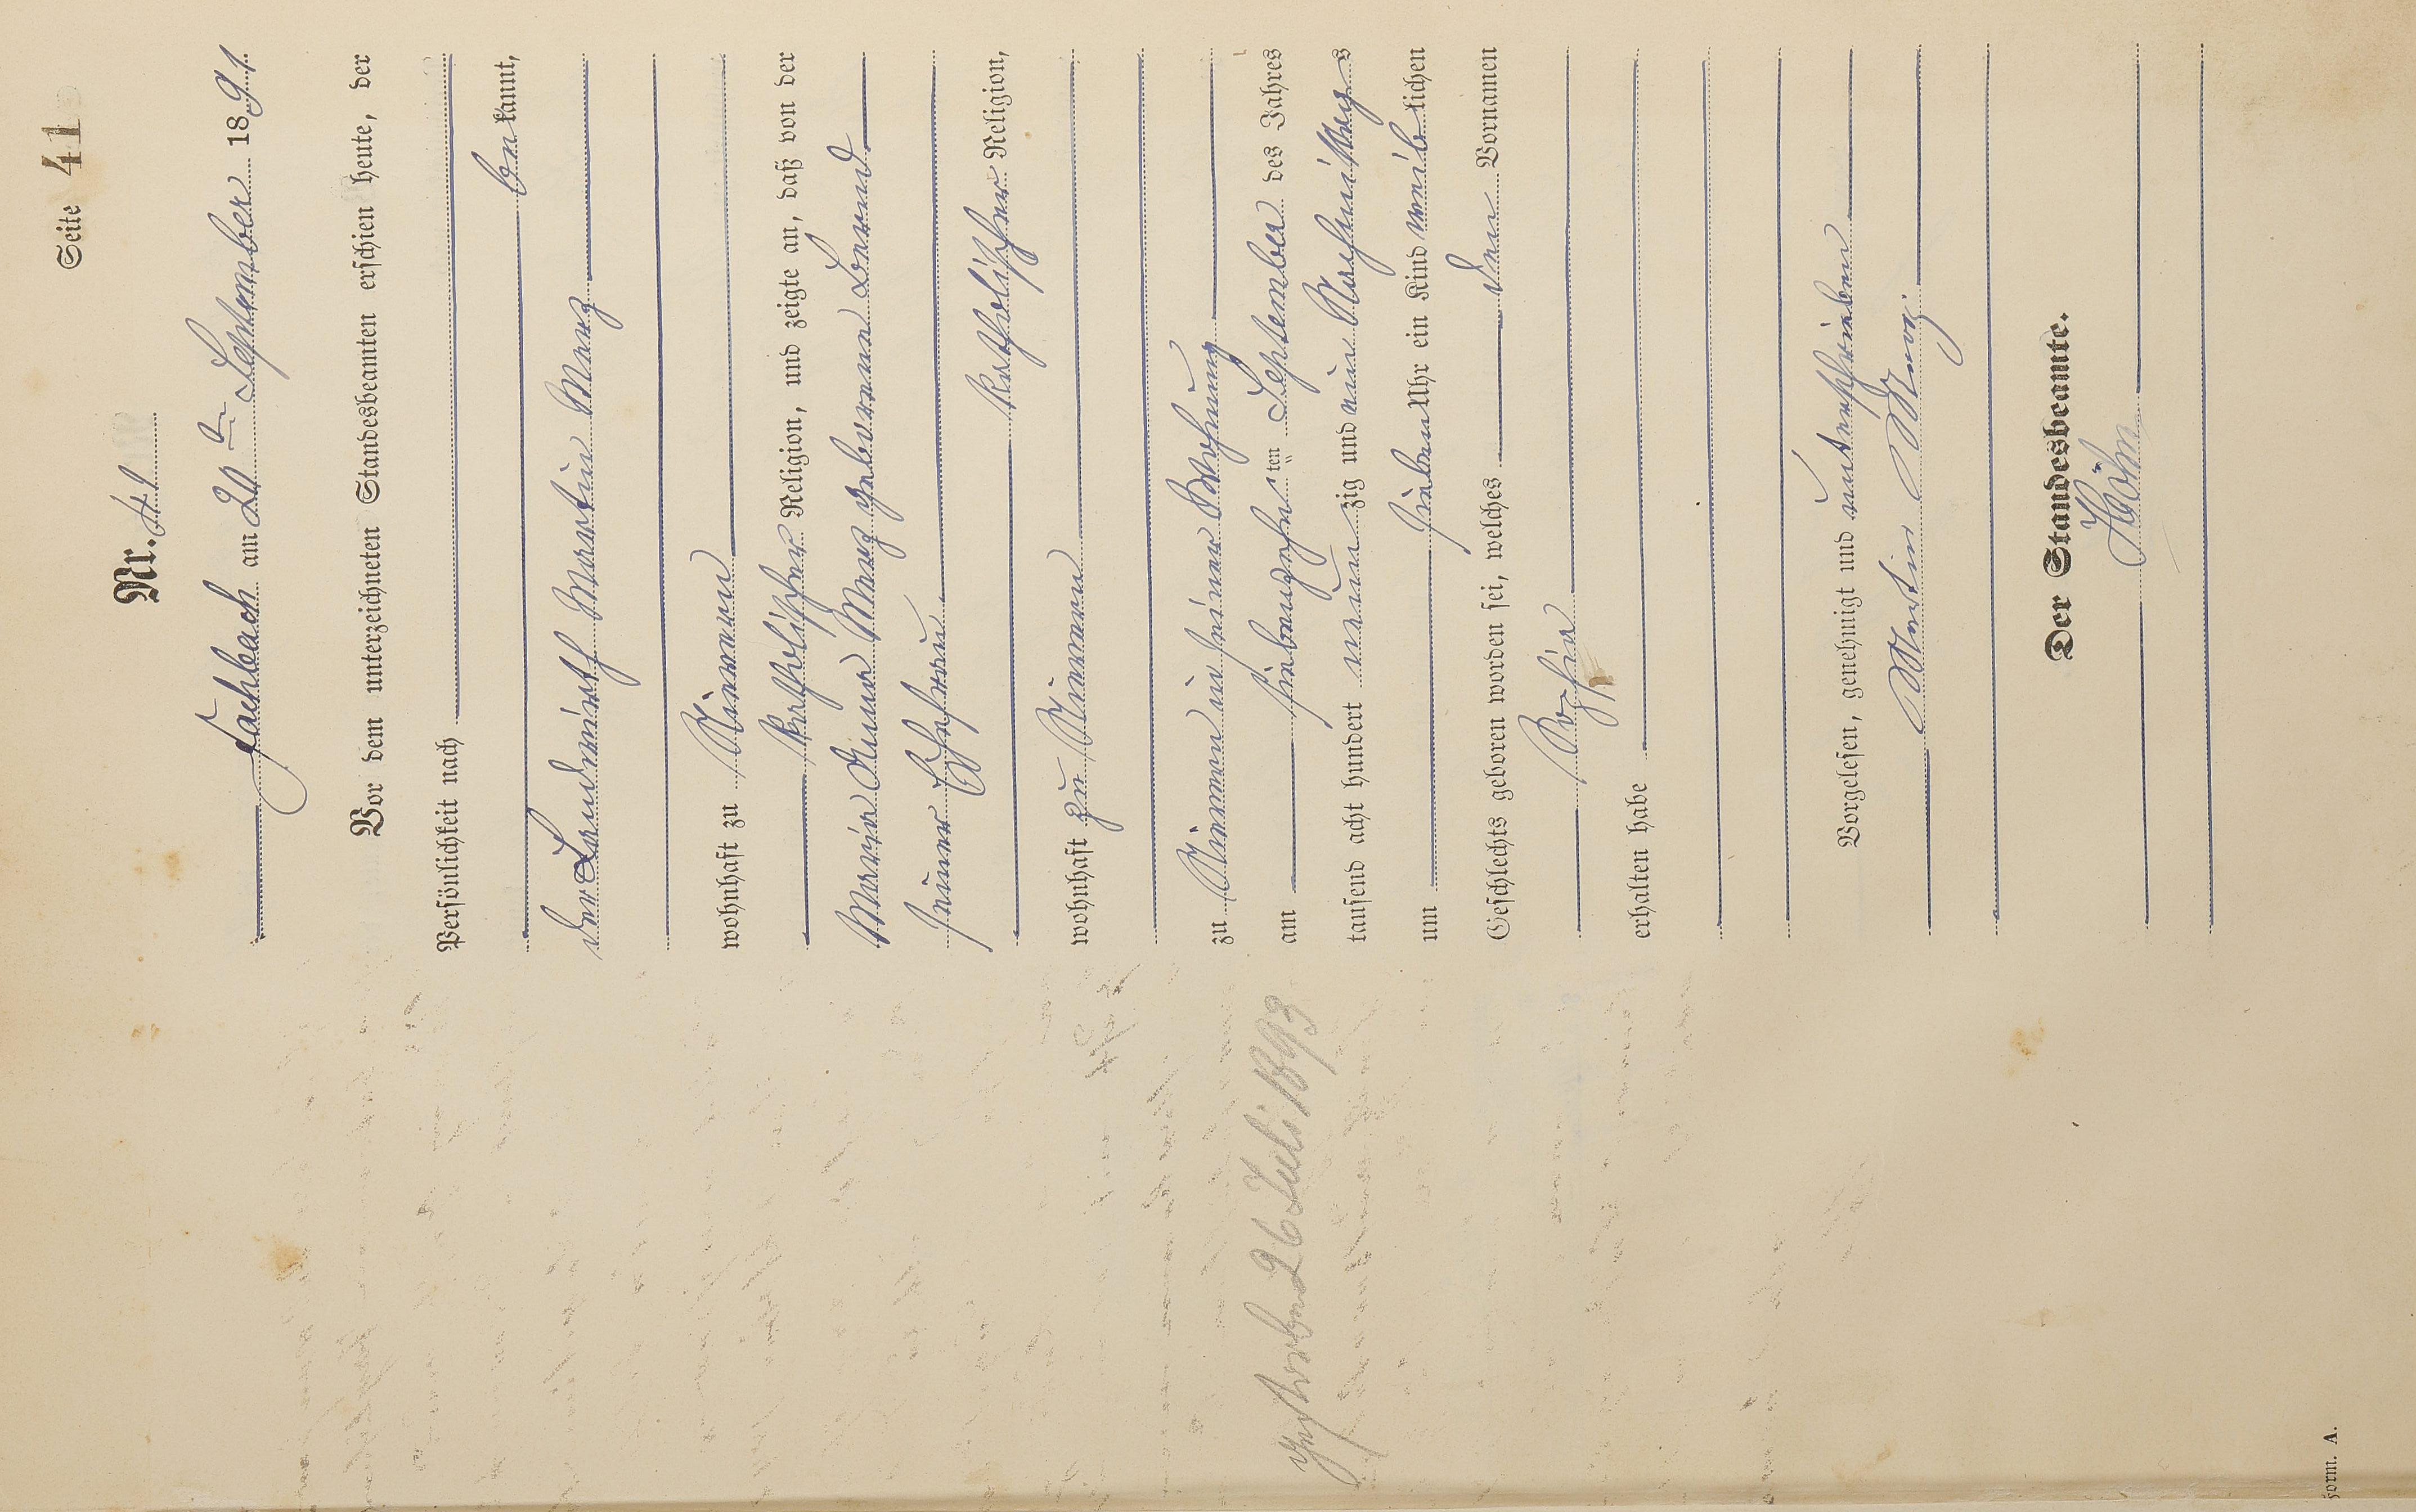 Seite 41
Nr. 41
Fachbach am 20 ten September 1891.
Vor dem unterzeichneten Standesbeamten erschien heute, der
Persönlichkeit nach
bekannt,
der Landwirth Martin Merz
wohnhaft zu Nievern
katholischer Religion, und zeigte an, daß von der
Maria Anna Merz geborenen
seiner Ehefrau
katholischer Religion,
wohnhaft zu Nievern
zu Nievern in seiner Wohnung
am siebenzehn ten September des Jahres
tausend acht hundert neunzig und ein Nachmittags
um sieben Uhr ein Kind weiblichen
Geschlechts geboren worden sei, welches den Vornamen
erhalten habe
Vorgelesen, genehmigt und unterschrieben
Martin Merz.
Der Standesbeamte.
gestorben 26 Juli 1893
Form. A.